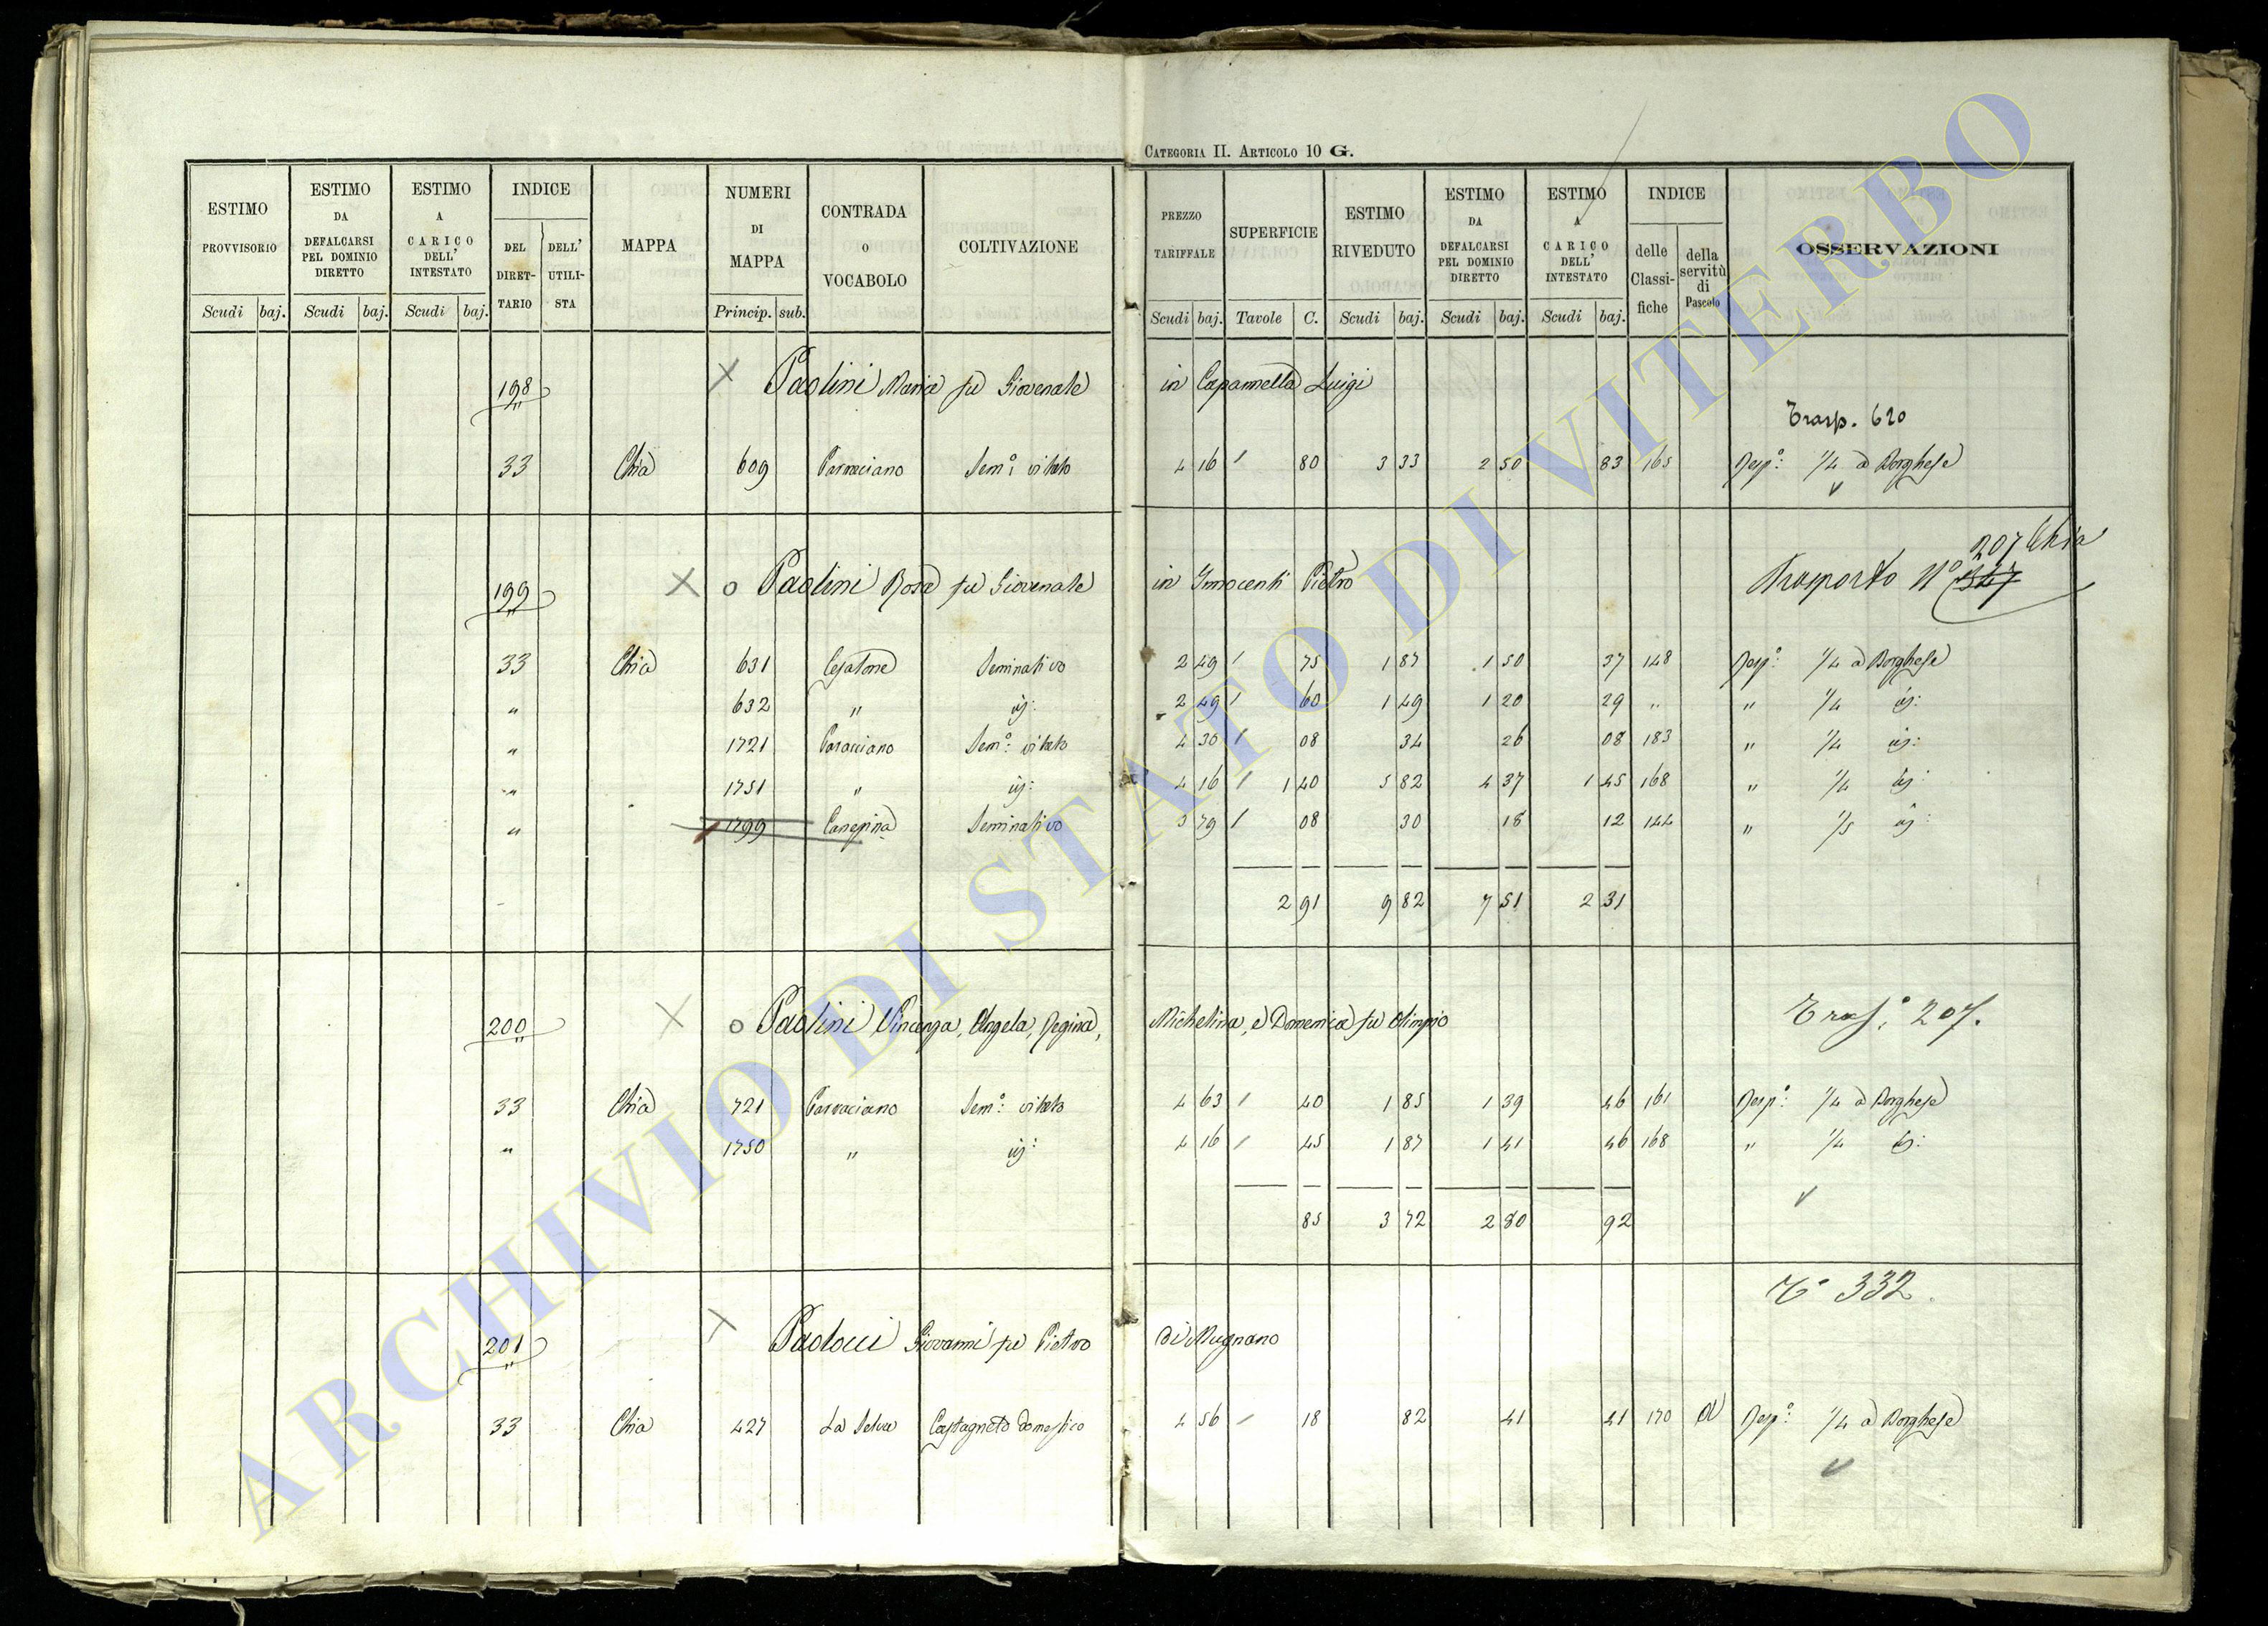 CATEGORIA II. ARTICOLO 10 G.
ESTIMO PROVVISORIO Scudi baj. ESTIMO DA DEFALCARSI PEL DOMINIO DIRETTO Scudi baj. ESTIMO A CARICO DELL' INTESTATO Scudi baj. INDICE DEL DIRET-TARIO DELL' UTILI-STA MAPPA NUMERI DI MAPPA Princip. sub. CONTRADA O VOCABOLO COLTIVAZIONE
PREZZO TARIFFALE Scudi baj. SUPERFICIE Tavole C. ESTIMO RIVEDUTO Scudi baj. ESTIMO DA DEFALCARSI PEL DOMINIO DIRETTO Scudi baj. ESTIMO A CARICO DELL' INTESTATO Scudi baj. INDICE delle Classi-fiche della servitù di Pascolo OSSERVAZIONI
198 X Paolini Maria fu Giovenale in Capannella Luigi
Trasp. 620
33 Chia 609 Parracciano Sem.o vitato 4 16 / 80 3 33 2 50 83 165 Risp.o 1/4 a Borghese
207 Chia
199 X o Paolini Rosa fu Giovenale in Innocenti Pietro Trasporto N.o 347
33 Chia 631 Cesatone Seminativo 2 49 / 75 1 87 1 50 37 148 Risp.o 1/4 a Borghese
" 632 " id: 2 49 / 60 1 49 1 20 29 " " 1/4 id:
" 1721 Paracciano Sem.o vitato 4 30 / 08 34 26 08 183 " 1/4 id:
" 1751 " id: 4 16 / 1 40 5 82 4 37 1 45 168 " 1/4 id:
" 1799 Canepina Seminativo 3 79 / 08 30 18 12 144 " 1/5 id:
2 91 9 82 7 51 2 31
200 X o Paolini Vincenza, Angela, Regina, Michelina, e Domenica fu Olimpio Tras.o 207.
33 Chia 721 Parracciano Sem.o vitato 4 63 / 40 1 85 1 39 46 161 Risp.o 1/4 a Borghese
" 1750 " id: 4 16 / 45 1 87 1 41 46 168 " 1/4 id:
85 3 72 2 80 92
T.o 332
201 X Paolocci Giovanni fu Pietro di Mugnano
33 Chia 427 La Selva Castagneto domestico 4 56 / 18 82 41 41 170 Risp.o 1/4 a Borghese
ARCHIVIO DI STATO DI VITERBO